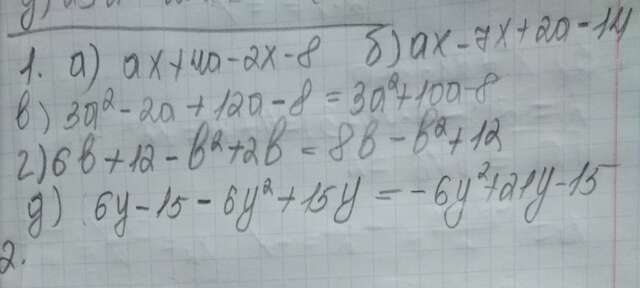 1. а) ax+4a-2x-8 б) ax-7x+2a-14
в) 3a²-2a+12a-8 = 3a²+10a-8
г) 6b+12-b²+2b = 8b-b²+12
д) 6y-15-6y²+15y = -6y²+21y-15
2.